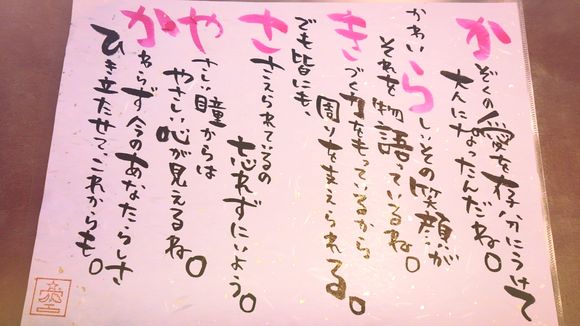 かぞくの愛を存分にうけて
大人になったんだね。
かわいらしいその笑顔が
それを物語っているね。
きづく力をもっているから
周りを支えられる。
でも皆にも、
ささえられているの
忘れずにいよう。
やさしい瞳からは
やさしい心が見えるね。
かわらず今のあなたらしさ
ひき立たせて、これからも。